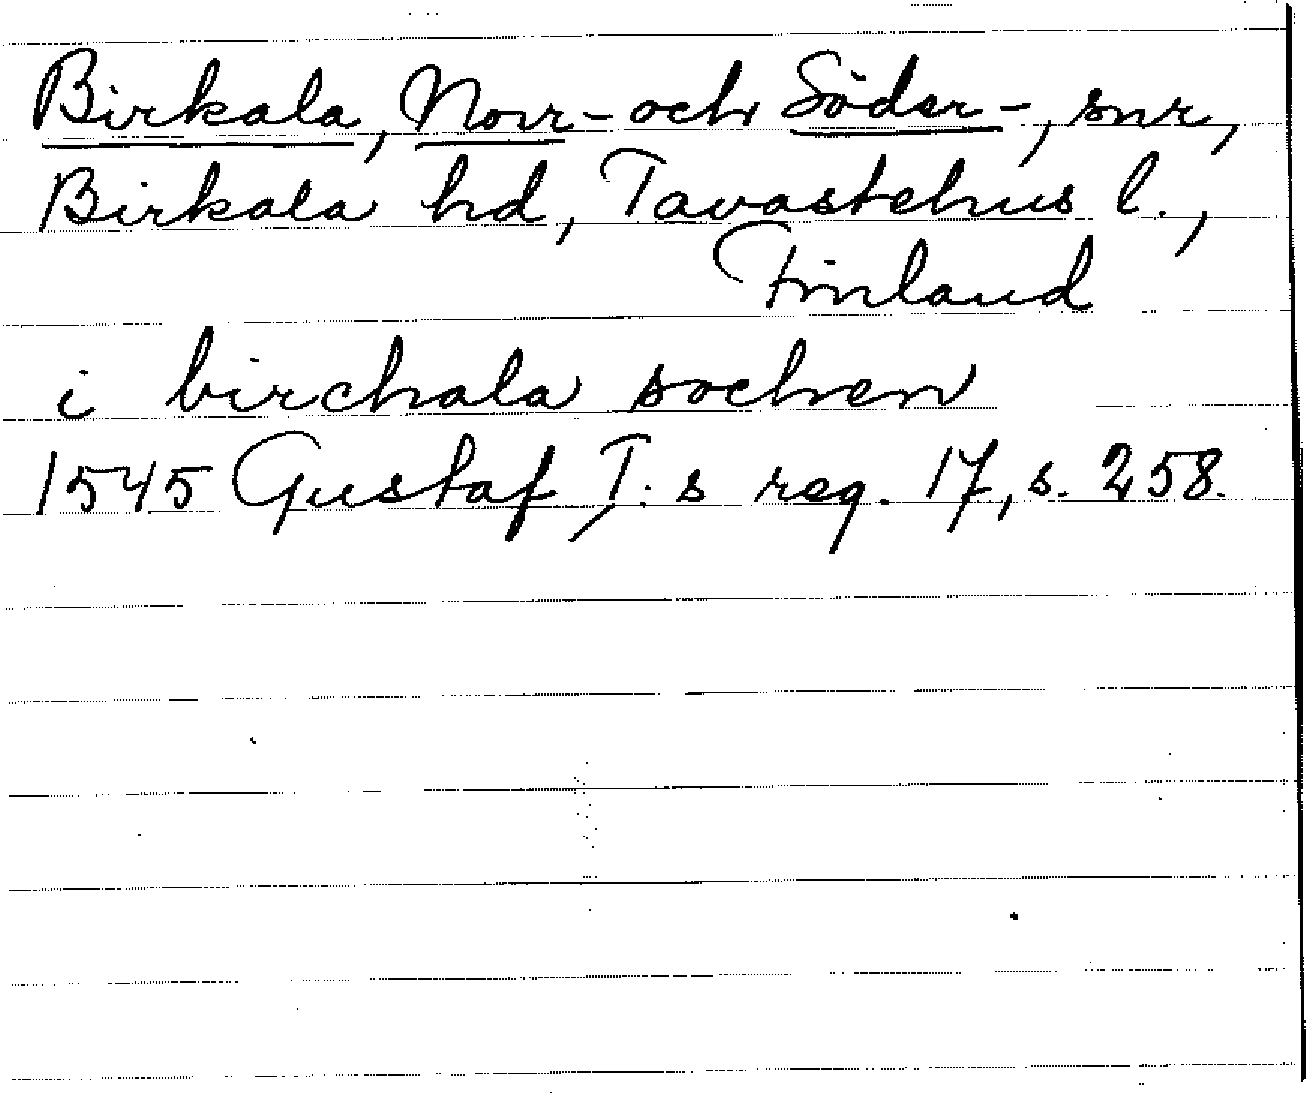 Birkala, Norr- och Söder-, snr,
Birkala hd, Tavastehus l.,
Finland
i birchala sochen
1545 Gustaf I:s reg. 17, s. 258.